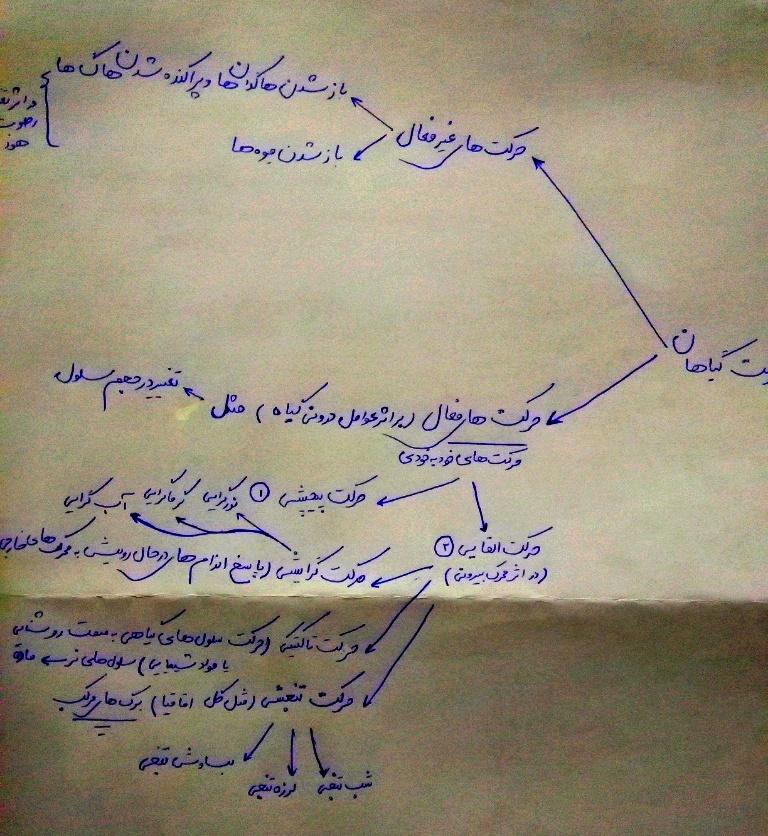 باز شدن هاگدان ها و پراکنده شدن هاگ ها
در اثر
رطوبت
هوا
حرکت های غیر فعال
باز شدن میوه ها
گیاهان
تغییر در حجم سلول
حرکت های فعال (بر اثر عوامل درونی گیاه) مثل
حرکت های خودبه خودی
حرکت پیچشی ①
نورگرایی
گرماگرایی
آب گرایی
حرکت القایی ②
(در اثر محرک بیرونی)
حرکت گرایشی (پاسخ اندام های در حال رویش به محرک های خارجی
حرکت تاکتیکی (حرکت سلول های گیاهی به سمت روشنایی
یا مواد شیمیایی) سلول های نر ماده
حرکت تنجشی (مثل گل اقاقیا) برگ های مرکب
شب تنجی
لرزه تنجی
بساوش تنجی